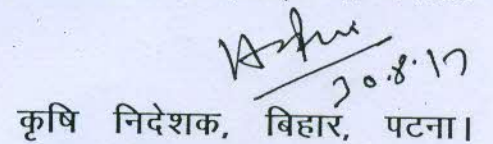 30.8.17
कृषि निदेशक, बिहार, पटना।